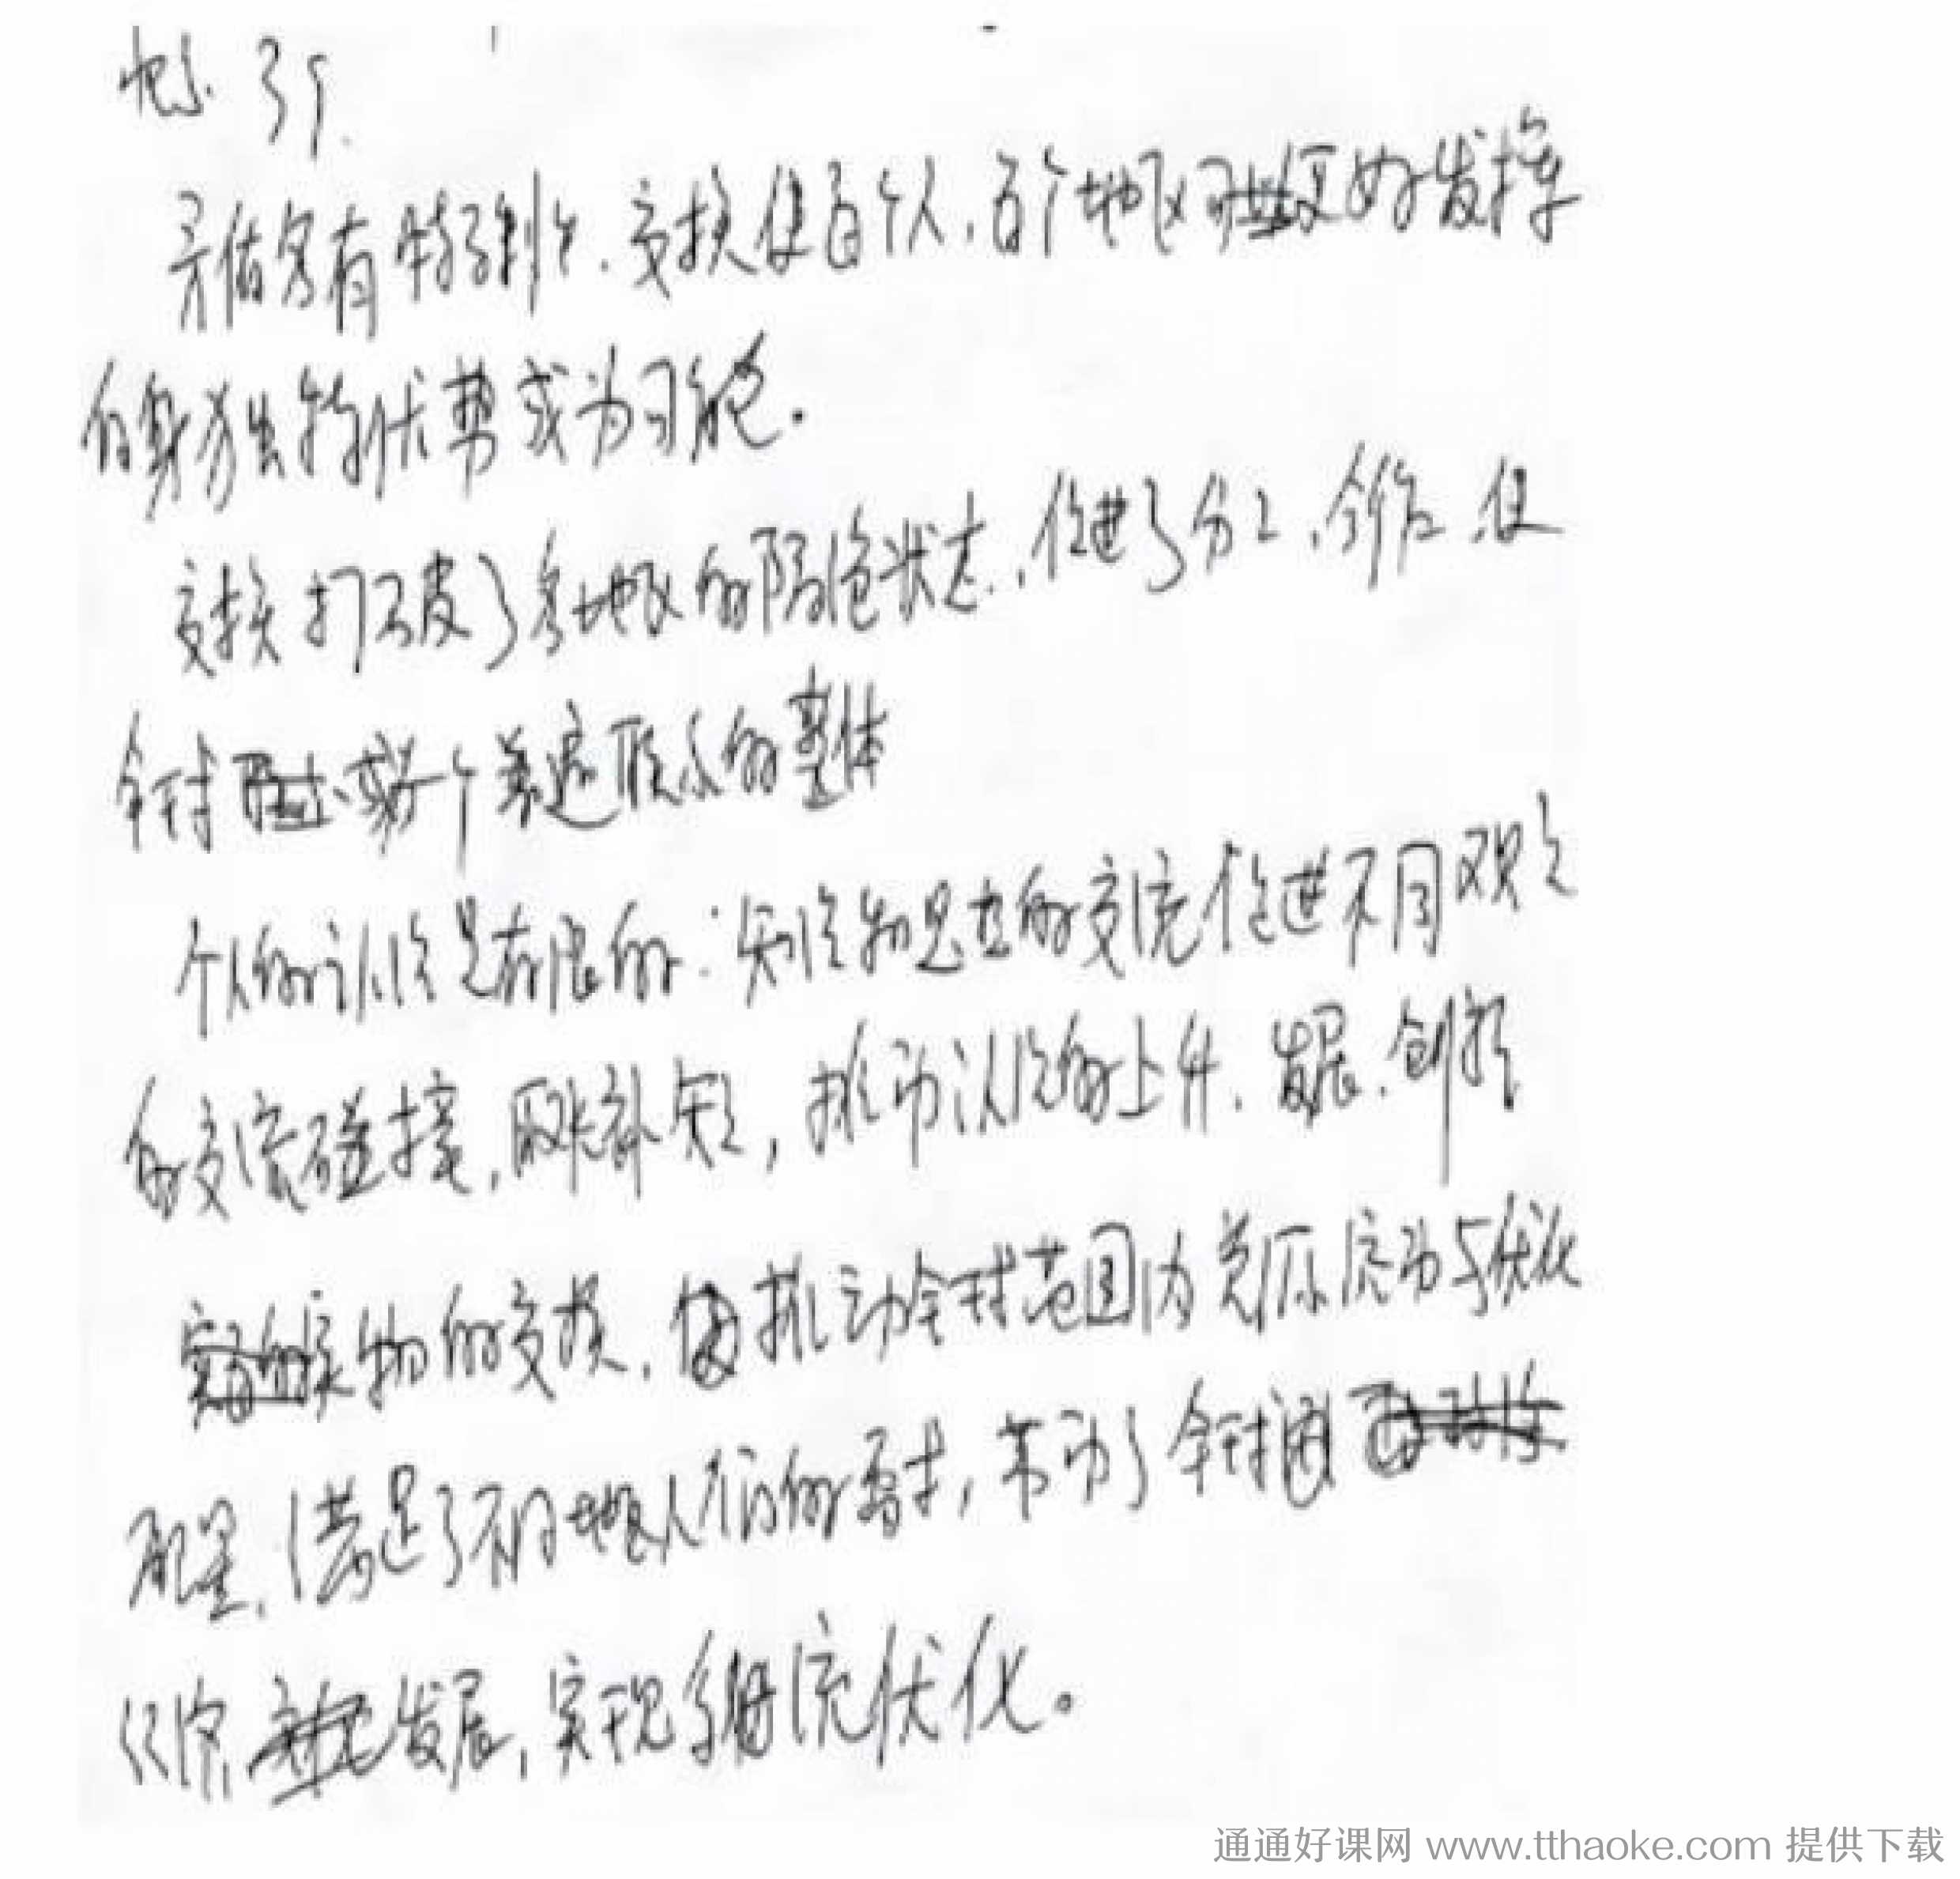 交换使各个人、各个地区可更好发挥
自身独特优势成为可能。
交换打破了各地区的隔绝状态,促进了分工、合作,使
全球成为一个普遍联系的整体
个人的认识是有限的:知识和思想的交流促进不同观点
的交流碰撞,取长补短,推动认识的上升、发展、创新
实物的交换,推动全球范围内资源流动与优化
配置,满足了不同地区人们的需求,带动了全球
经济发展,实现 流优化。
通通好课网 www.tthaoke.com 提供下载